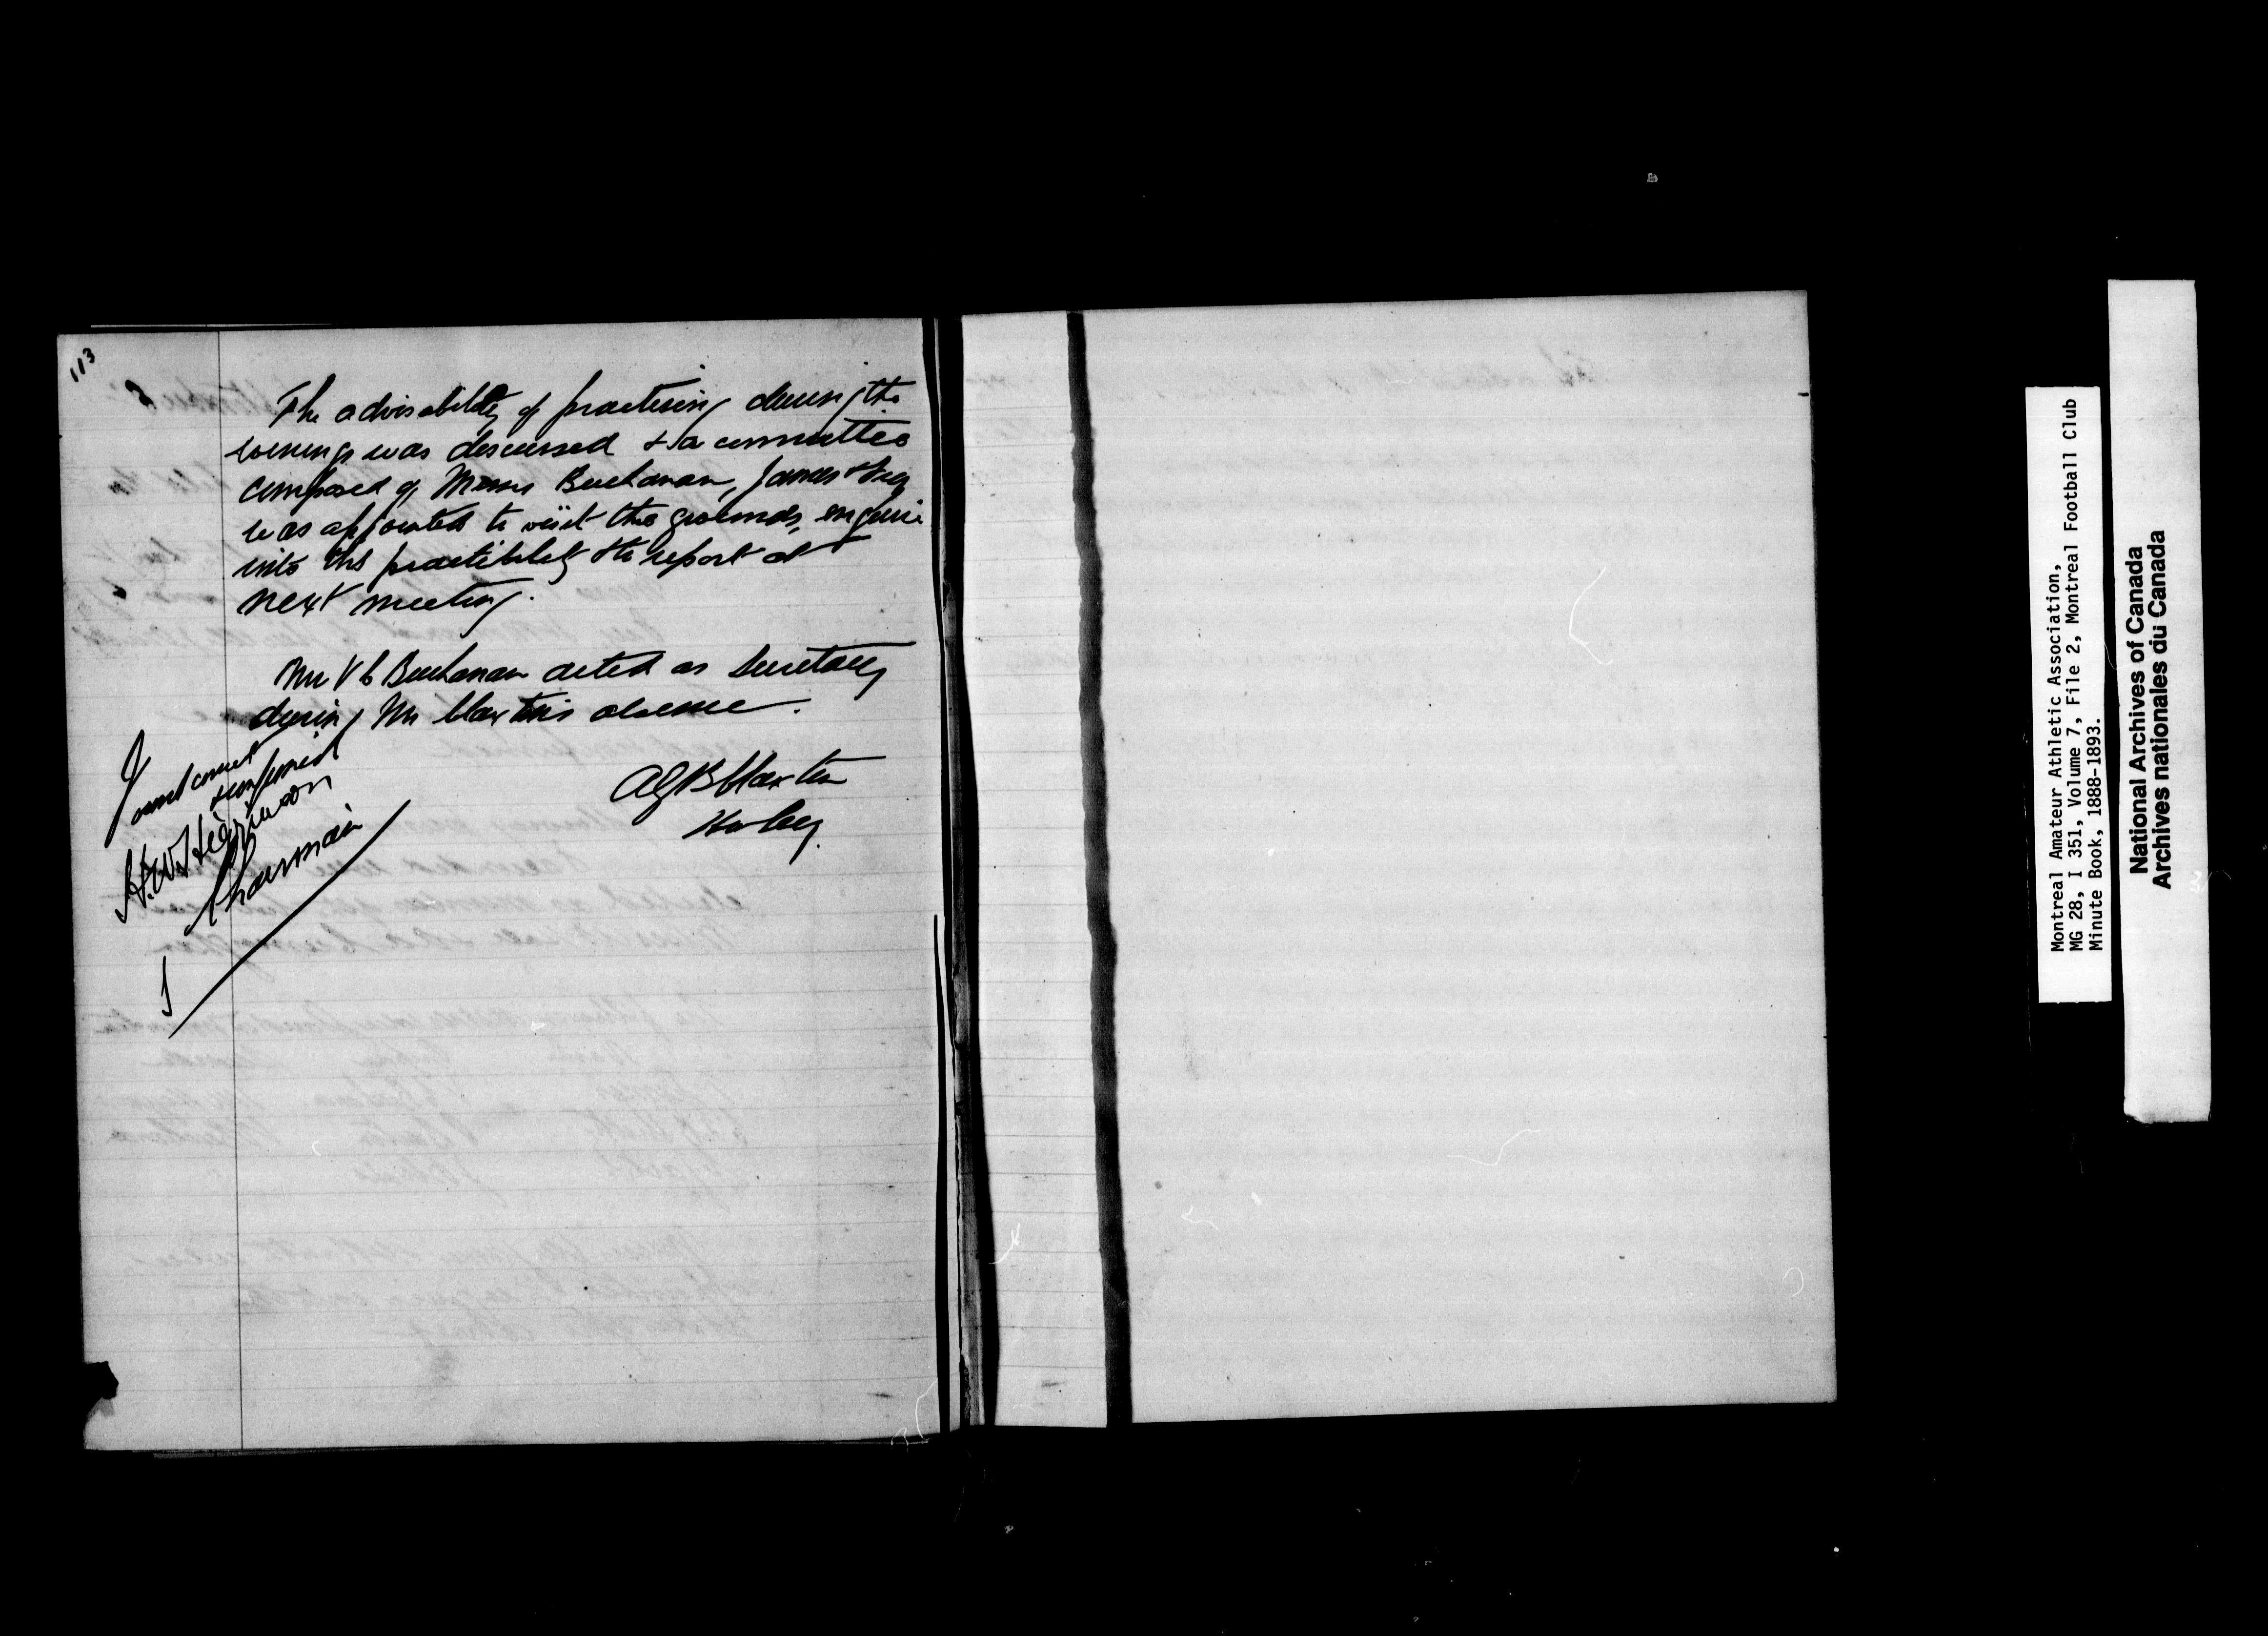 113
The advisability of practising during the
evenings was discussed & a committee
composed of Messrs Buchanan, James &
was appointed to visit the grounds, enquire
into the practibility & to report at
next meeting.
Mr V C Buchanan acted as Secretary
during Mr Claxton's absence.
Found correct
& confirmed
Chairman
AGB Claxton
Hon Secy.
Montreal Amateur Athletic Association,
MG 28, I 351, Volume 7, File 2, Montreal Football Club
Minute Book, 1888-1893.
National Archives of Canada
Archives nationales du Canada